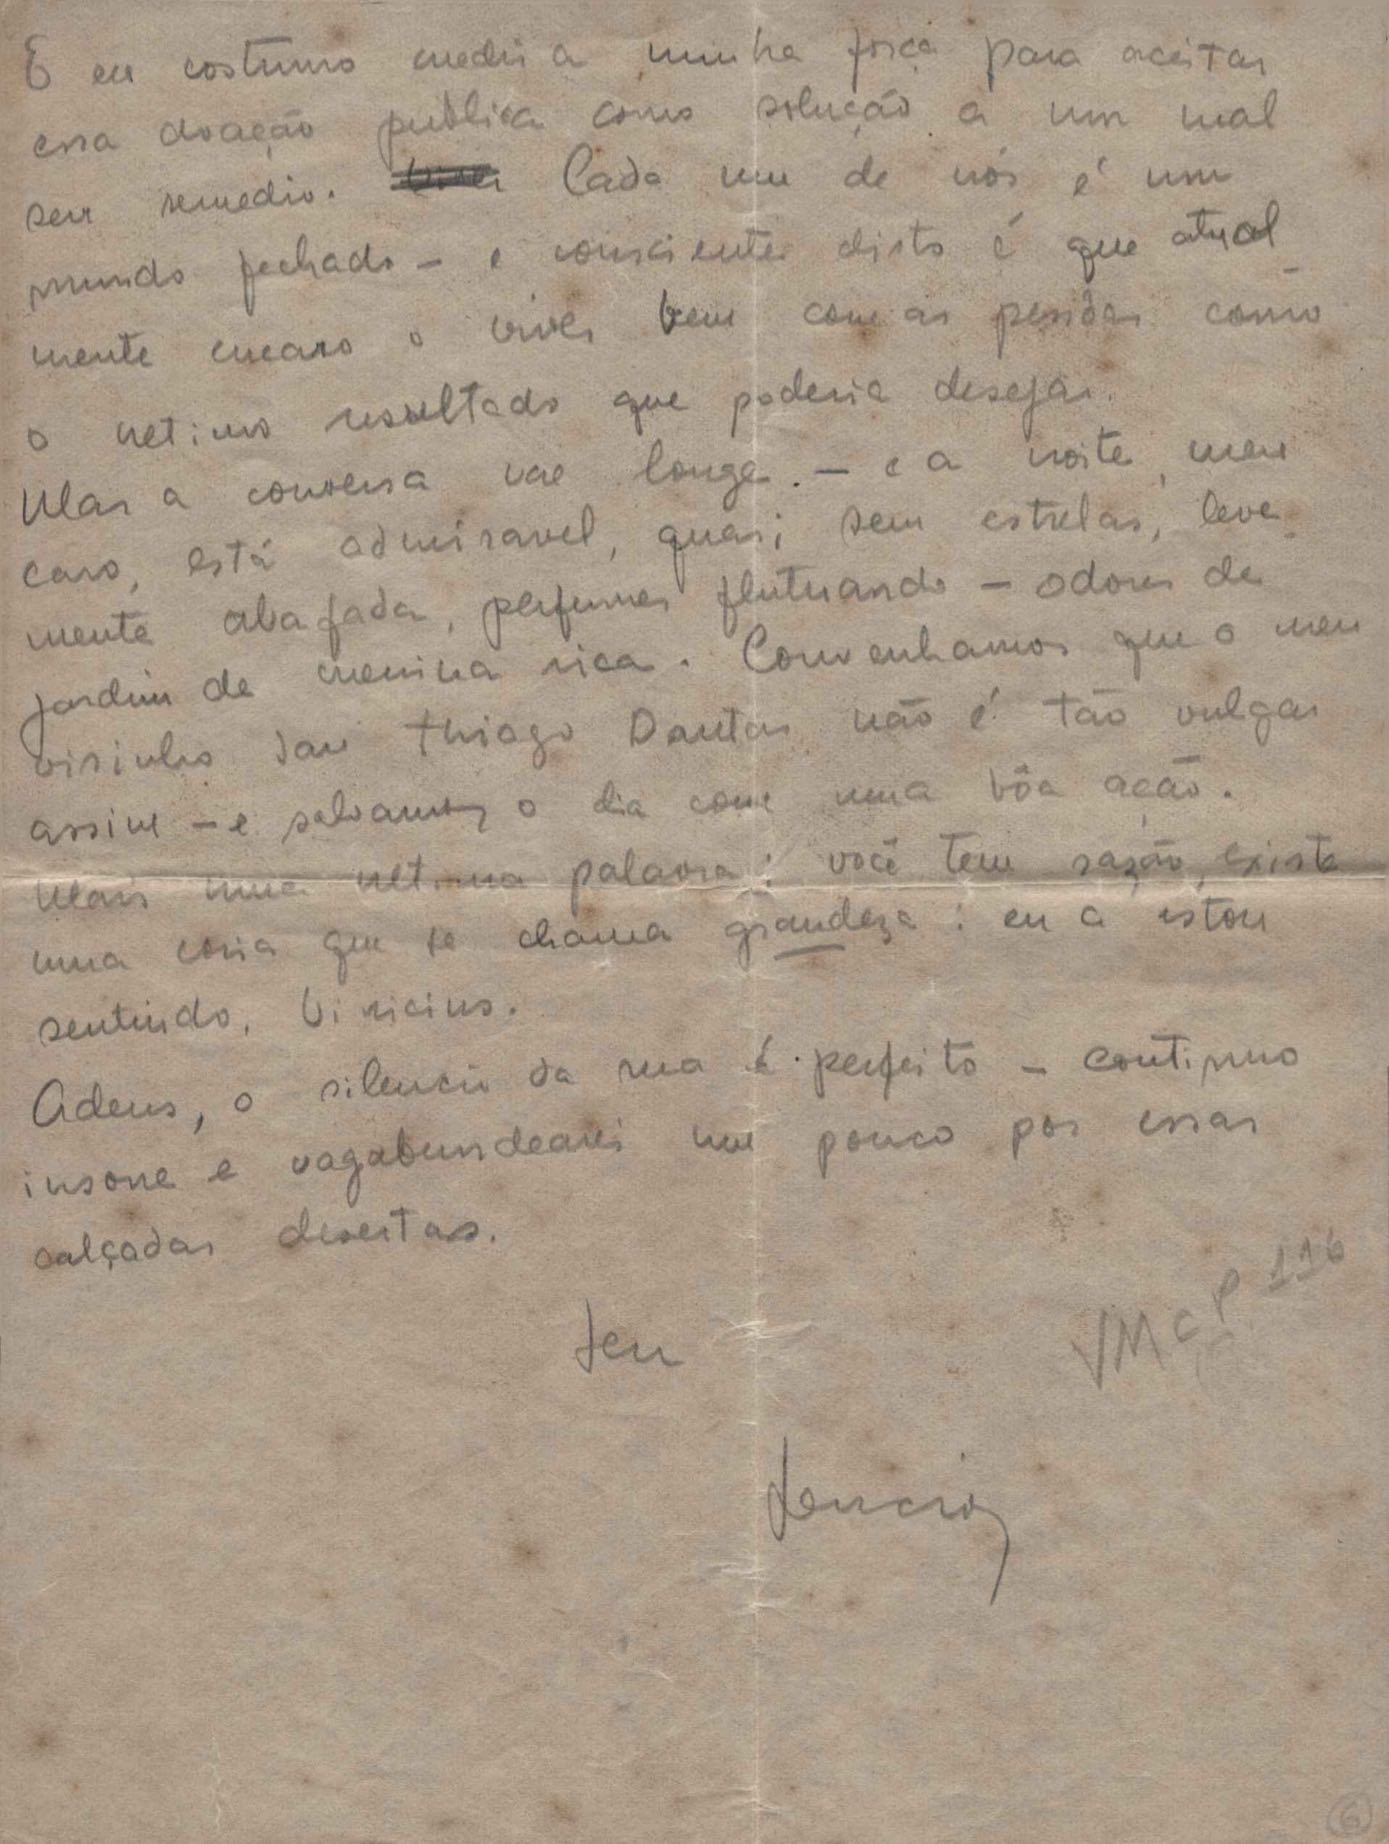 E eu costumo medir a minha força para aceitar
essa doação publica como solução a um mal
sem remedio. Cada um de nós é um
mundo fechado – e consciente disto é que atual
mente encaro o viver bem com as pessôas como
o ultimo resultado que poderia desejar.
Mas a conversa vae longe. – e a noite, meu
caro, está admiravel, quasi sem estrelas, leve
mente abafada, perfumes flutuando – odores de
jardim de menina rica. Convenhamos que o meu
visinho San Thiago Dantas não é tão vulgar
assim – e salvamos o dia com uma bôa ação.
Mais uma ultima palavra: você tem razão, existe
uma coisa que se chama grandeza: eu a estou
sentindo, Vinicius.
Adeus, o silencio da rua é perfeito – continuo
insone e vagabundearei um pouco por essas
calçadas desertas.
Seu
VMcp 116
6